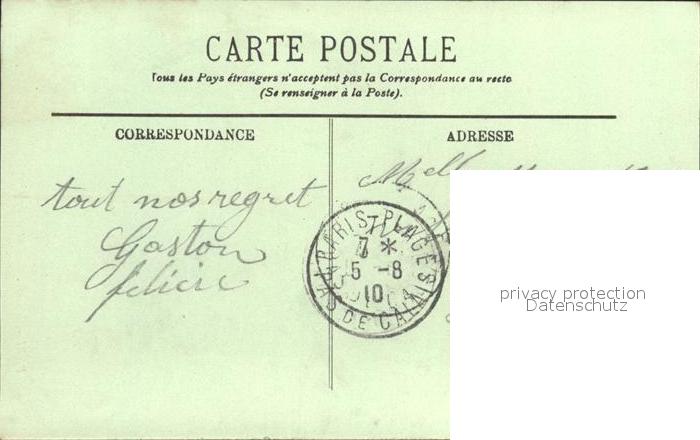 CARTE POSTALE
Tous les Pays étrangers n'acceptent pas la Correspondance au recto
(Se renseigner à la Poste).
CORRESPONDANCE
ADRESSE
tout nos regret
Gaston
felicie
Melle
PARIS-PLAGE
7 *
5 -8
10
PAS DE CALAIS
privacy protection
Datenschutz